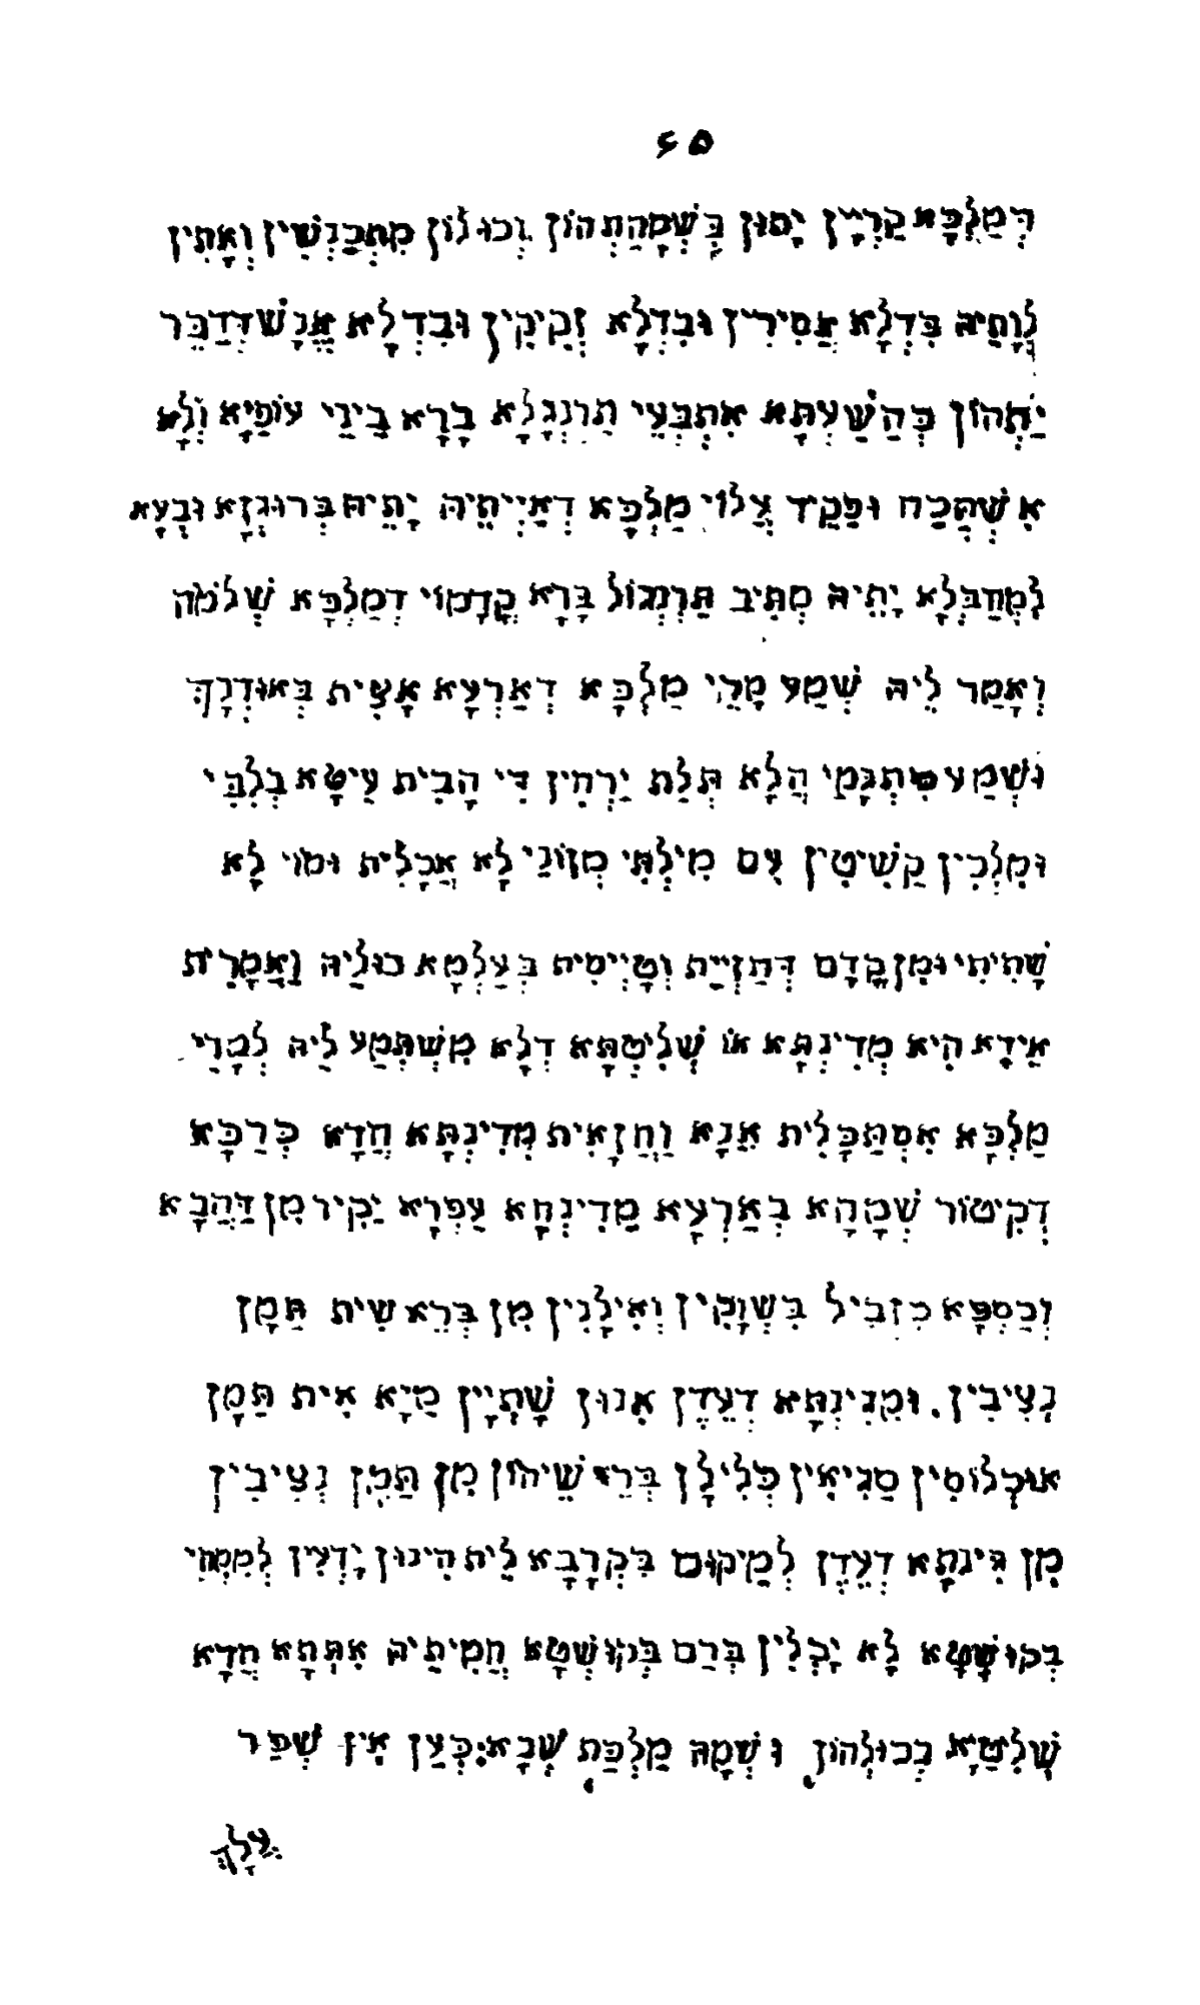 ۶۵
דְּמַלְכָּא קַרְיָין יָתְהוֹן בִּשְׁמָהַתְהוֹן וְכוּלוֹן מִתְכַּנְשִׁין וְאָתִין
לְוָתֵיהּ בִּדְלָא אֲסִירִין וּבִדְלָא זְקִיקִין וּבִדְלָא אֱנָשׁ דְּדַבֵּר
יַתְהוֹן בְּהַשַׁעְתָּא אִתְבְּעֵי תַרְנְגָלָא בָרָא בֵּינֵי עוֹפַיָא וְלָא
אִשְׁתְּכַח וּפַקֵיד עֲלוֹי מַלְכָּא דְאַיְיתֵיהּ יָתֵיהּ בְּרוּגְזָא וּבְעָא
לְמְחַבְּלָא יָתֵיהּ מְתִיב תַּרְנְגוֹל בָּרָא קֳדָמוֹי דְמַלְכָּא שְׁלֹמֹה
וְאָמַר לֵיהּ שְׁמַע מָרֵי מַלְכָּא דְאַרְעָא אָצִית בְּאוּדְנָךְ
וּשְׁמַע פִּתְגָמַי הֲלָא תְּלַת יַרְחִין דִּי הָבִית עֵיטָא בְלִבִּי
וּמִלְכִין קַשִׁיטִין עִם מִילְתִּי מְזוֹנֵי לָא אֲכָלִית וּמוֹי לָא
שָׁתִיתִי וּמִן קֳדָם דְּחַזְיַית וְטָיְיסִית בְּעַלְמָא כוּלֵיהּ וַאֲמָרִית
אֵידָא הִיא מְדִינְתָּא אוֹ שְׁלִיטְתָּא דְלָא מִשְׁתְּמַע לֵיהּ לְמָרֵי
מַלְכָּא אִסְתַּכָּלִית אֲנָא וַחֲזָאִית מְדִינְתָּא חֲדָא כְּרַכָּא
דְקִיטוֹר שְׁמָהָא בְאַרְעָא מַדִינְחָא עַפְרָא יַקִיר מִן דַּהֲבָא
וְכַסְפָּא כְּזְבִיל בִּשְׁוָקִין וְאִילָנִין מִן בְּרֵאשִׁית תַּמָן
נְצִיבִין. וּמִגִינְתָּא דְעֵדֶן אִנוּן שָׁתְיָין מַיָא אִית תַּמָן
אוּכְלוֹסִין סַגִיאִין כְּלִילָן בְּרֵישֵׁיהוֹן מִן תַּמָן נְצִיבִין
מִן גִּינתָא דְעֵדֶן לְמֵיקוּם בִּקְרָבָא לֵית הִינוּן יָדְעִין לְמִמְחֵי
בְּקוּשְׁטָא לָא יָכְלִין בְּרַם בְּקוּשְׁטָא חֲמִיתֵיהּ אִתְּתָא חֲדָא
שַׁלִיטָא בְכוּלְהוֹן וּשְׁמָהּ מַלְכַּת שְׁבָא: כְּעַן אִין שְׁפַר
עֲלָךְ